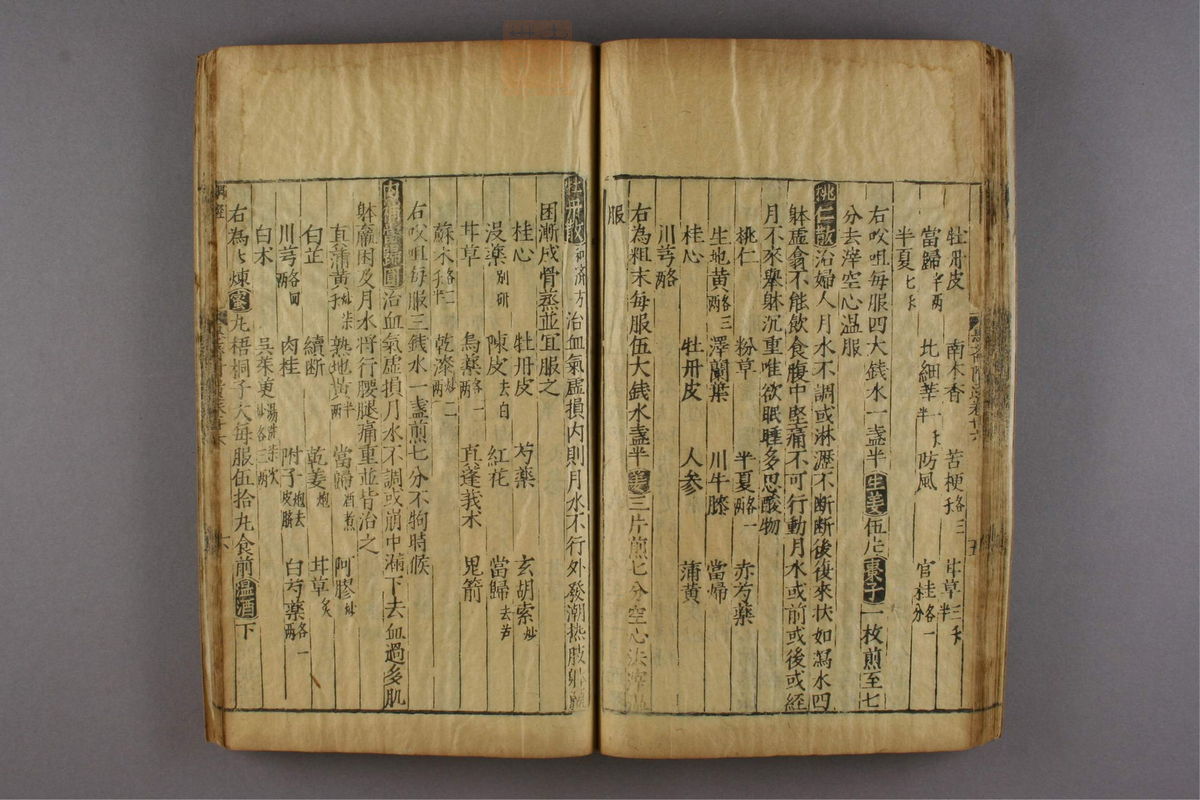 牡丹皮 南木香 苦梗各三 甘草三 半
當歸 半兩 北細辛 半 防風 官桂各一分
半夏七
右㕮咀每服四大錢水一盞半生姜伍片棗子一枚煎至七
分去滓空心温服
桃仁散治婦人月水不調或淋瀝不斷斷後復來狀如瀉水四
躰虛翕不能飲食腹中堅痛不可行動月水或前或後或経
月不來舉躰沉重唯欲眠睡多思酸物
桃仁 粉草 半夏各一兩 赤芍藥
生地黄各三兩 澤蘭葉 川牛膝 當歸
桂心 牡丹皮 人参 蒲黄
川芎各兩
右為粗末每服伍大錢水盞半姜三片煎七分空心去滓温
服
牡丹散 濟方 治血氣虛損内則月水不行外發潮热肢躰
困漸成骨蒸並宜服之
桂心 牡丹皮 芍藥 玄胡索炒
没藥別研 陳皮去白 紅花 當歸去芦
甘草 烏藥各一 兩 真蓬莪术 鬼箭
蘇木各二 半 乾漆炒二兩
右㕮咀每服三錢水一盞煎七分不拘時候
内補當歸圓治血氣虛損月水不調或崩中漏下去血過多肌
躰羸困及月水將行腰腿痛重並皆治之
真蒲黄炒 熟地黄半兩 當歸酒煮 阿膠炒
白芷 續斷 乾姜炮 甘草炙
川芎各四兩 肉桂 附子炮去皮臍 白芍藥各一兩
白术 吳茱萸湯 炒各三兩
右為 煉蜜丸梧桐子大每服伍拾丸食前温酒下